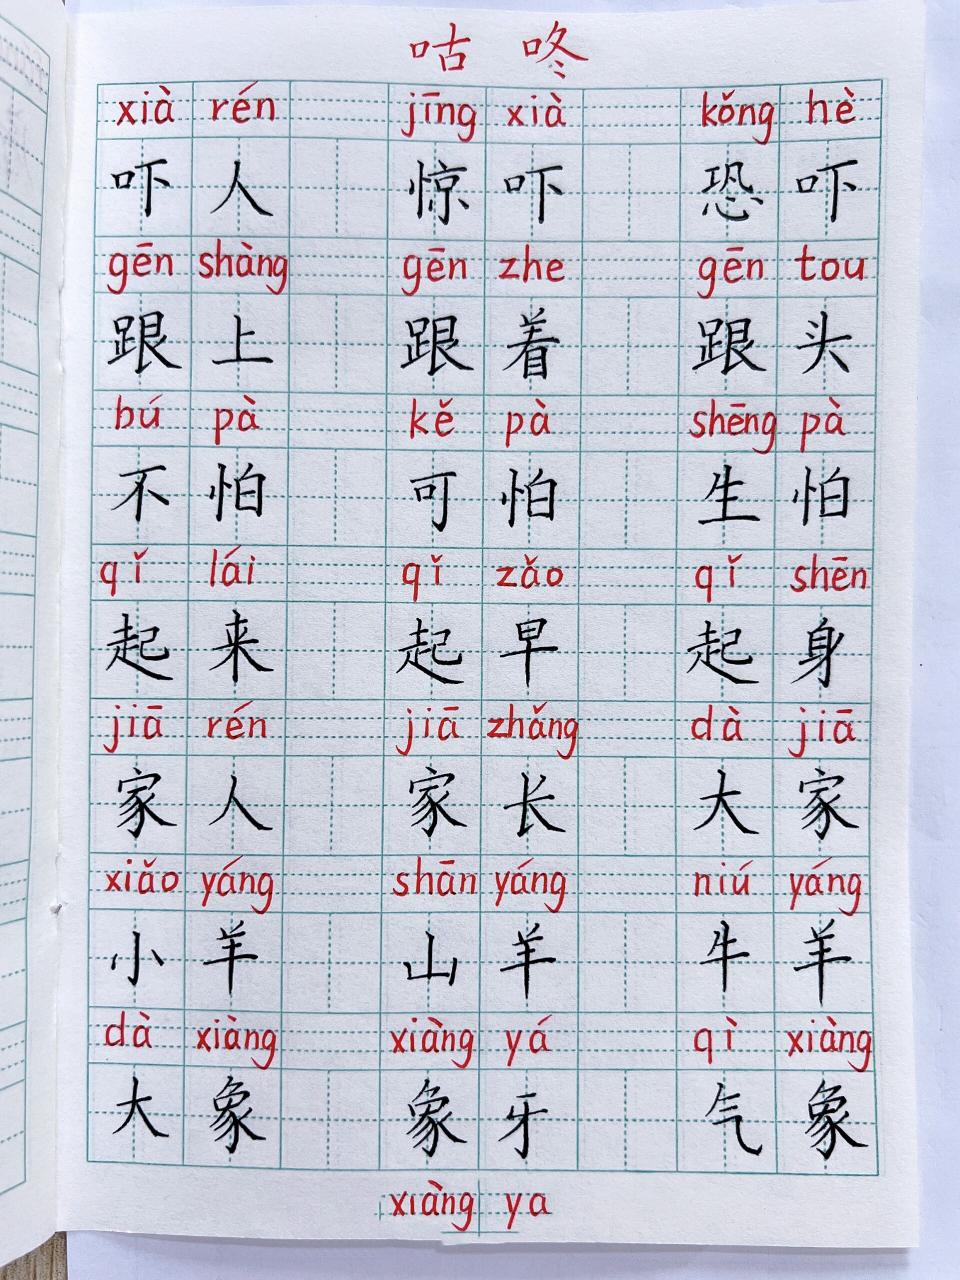 咕咚
xià rén jīng xià kǒng hè
吓人 惊吓 恐吓
gēn shàng gēn zhe gēn tou
跟上 跟着 跟头
bú pà kě pà shēng pà
不怕 可怕 生怕
qǐ lái qǐ zǎo qǐ shēn
起来 起早 起身
jiā rén jiā zhǎng dà jiā
家人 家长 大家
xiǎo yáng shān yáng niú yáng
小羊 山羊 牛羊
dà xiàng xiàng yá qì xiàng
大象 象牙 气象
xiàng ya